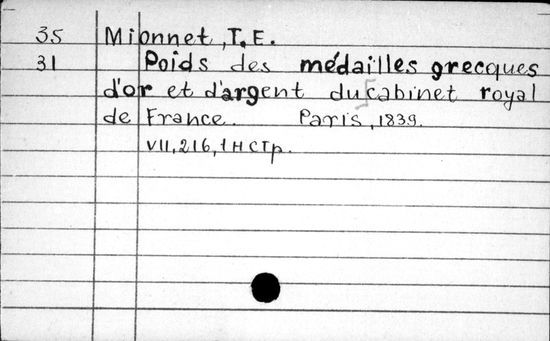 35 Mionnet, T.E.
31 Poids des médailles grecques
d'or et d'argent du cabinet royal
de France. Paris, 1839.
VII, 216, 1 н стр.